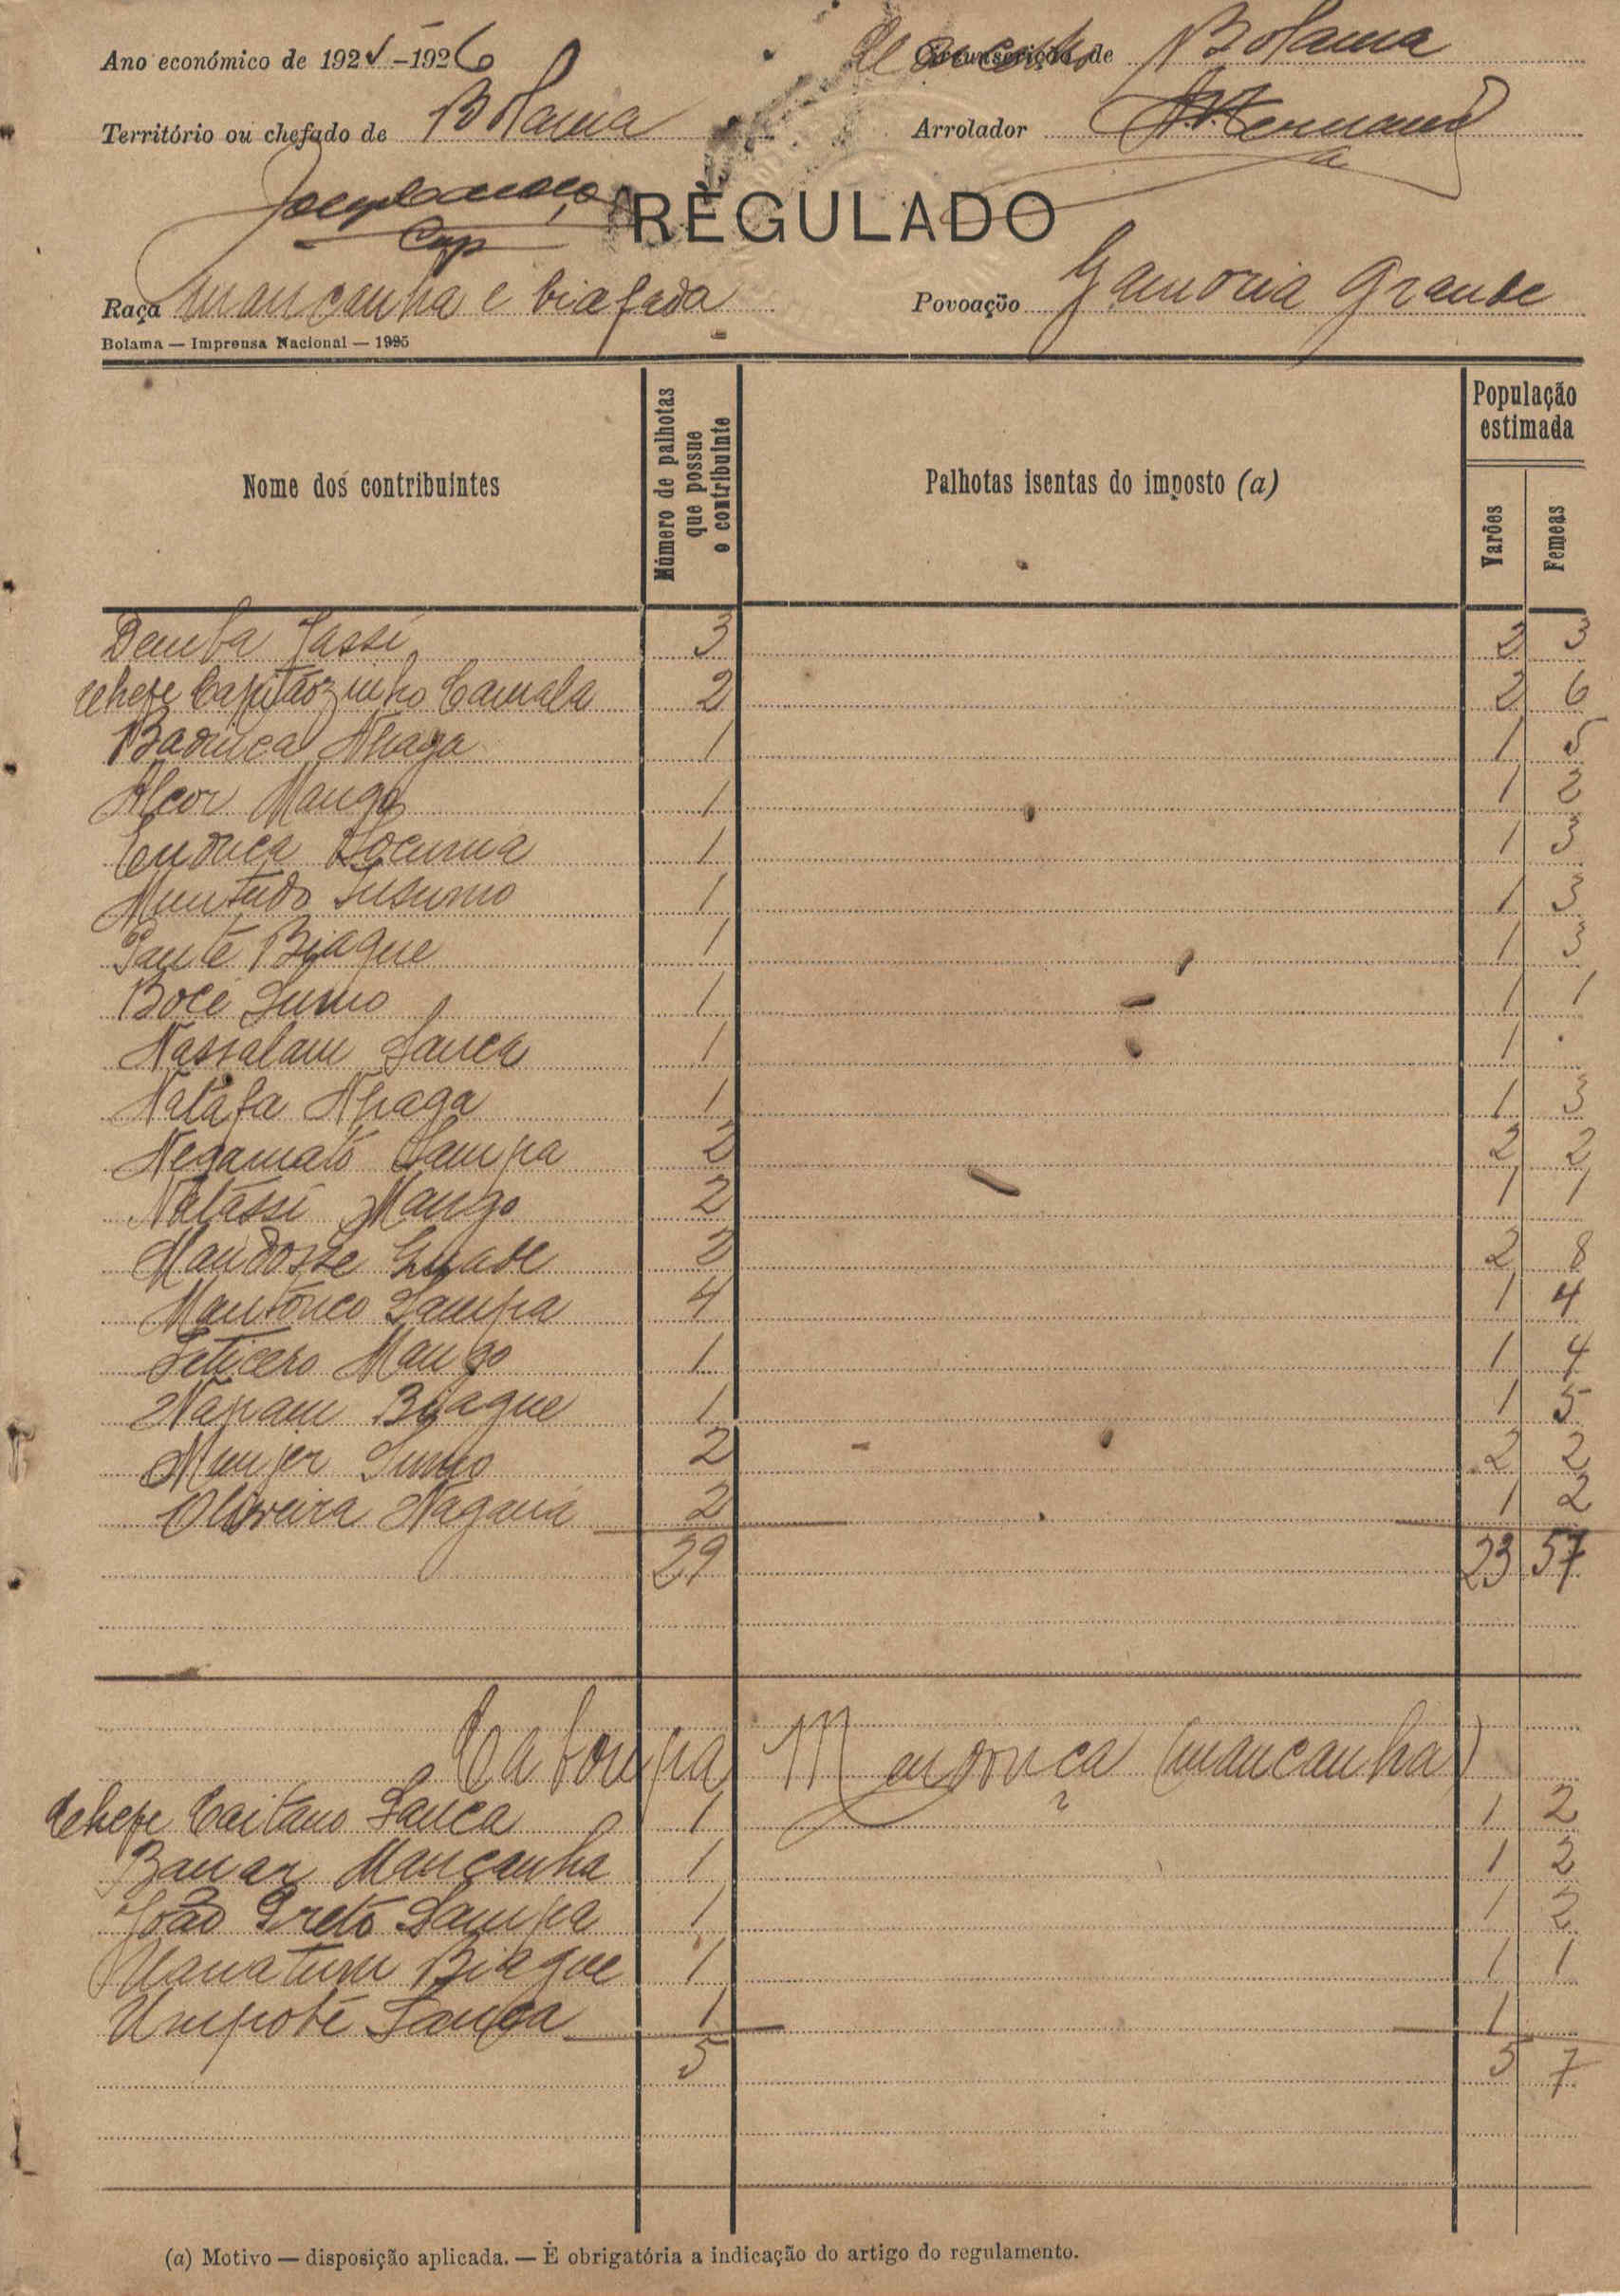 Ano económico de 1925-1926 Concelho de Bolama
Território ou chefado de Bolama Arrolador
REGULADO
Cap
Raça mancanha e biafada Povoação Gamoria Grande
Bolama — Imprensa Nacional — 1925
Nome dos contribuintes
Número de palhotas que possue o contribuinte
Palhotas isentas do imposto (a)
População estimada
Varões
Femeas
Demba Sassi 3 2 3
Chefe Capitãozinho Camala 2 2 6
Badinca Nhaga 1 1 5
Alçor Mango 1 1 2
1 1 3
1 1 3
Santé Biague 1 1 3
Bocé Sumo 1 1 1
Nassalam Sanca 1 1 .
Natáfa Nhaga 1 1 3
Negamató Sampa 2 2 2
Natássi Mango 2 1 1
2 2 8
Mantonco Sampa 4 1 4
Feticero Mango 1 1 4
Napam Biague 1 1 5
Munjer Sumo 2 2 2
Oliveira Nagana 2 1 2
29 23 57
(mancanha)
Chefe Caitano Sanca 1 1 2
Banar Mancanha 1 1 2
João Preto Sampa 1 1 2
Manatum Biague 1 1 1
Umpoté Sanca 1 1
5 5 7
(a) Motivo — disposição aplicada. — É obrigatória a indicação do artigo do regulamento.